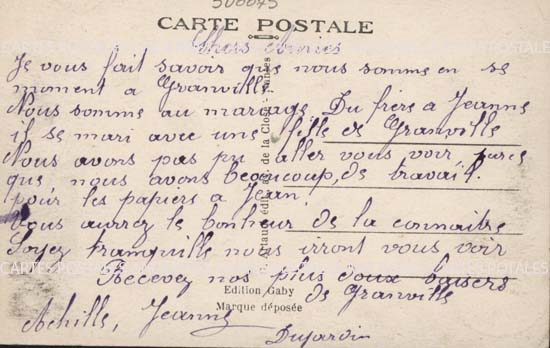 500075
CARTE POSTALE
Chers Amies
Je vous fait savoir que nous somme en se
moment a Granville
Nous somme au marriage. Du frère a Jeanne
il se mari avec une fille de Granville
Nous avons pas pu aller vous voir, parce
que, nous avons beaucoup, de travail.
pour les papiers a Jean.
Vous aurrez le bonheur de la connaitre
Soyez tranquille nous irront vous voir
Recevez nos plus doux baisers
de Granville
Achille, Jeanne
Dujardin
Edition Gaby
Marque déposée
Artaud édit. de la Close - Nantes